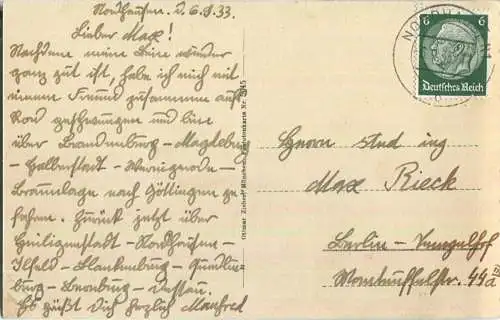 Nordhausen, d. 6.9.33.
Lieber Max!
Nachdem meine Beine wieder
ganz gut ist, habe ich mich mit
einem Freund zusammen aufs
Rad geschwungen und bin
über Brandenburg – Magdeburg
– Halberstadt – Wernigerode –
Braunlage nach Göttingen ge-
fahren. Zurück jetzt über
Heiligenstadt – Nordhausen –
Ilfeld – Blankenburg – Quedlin-
burg – Bernburg – Dessau.
Es grüßt Dich herzlich Manfred
Ottmar Zieher, München
6 6
Deutsches Reich
Herrn stud ing
Max Rieck
Berlin – Tempelhof
Manteuffelstr. 44a III